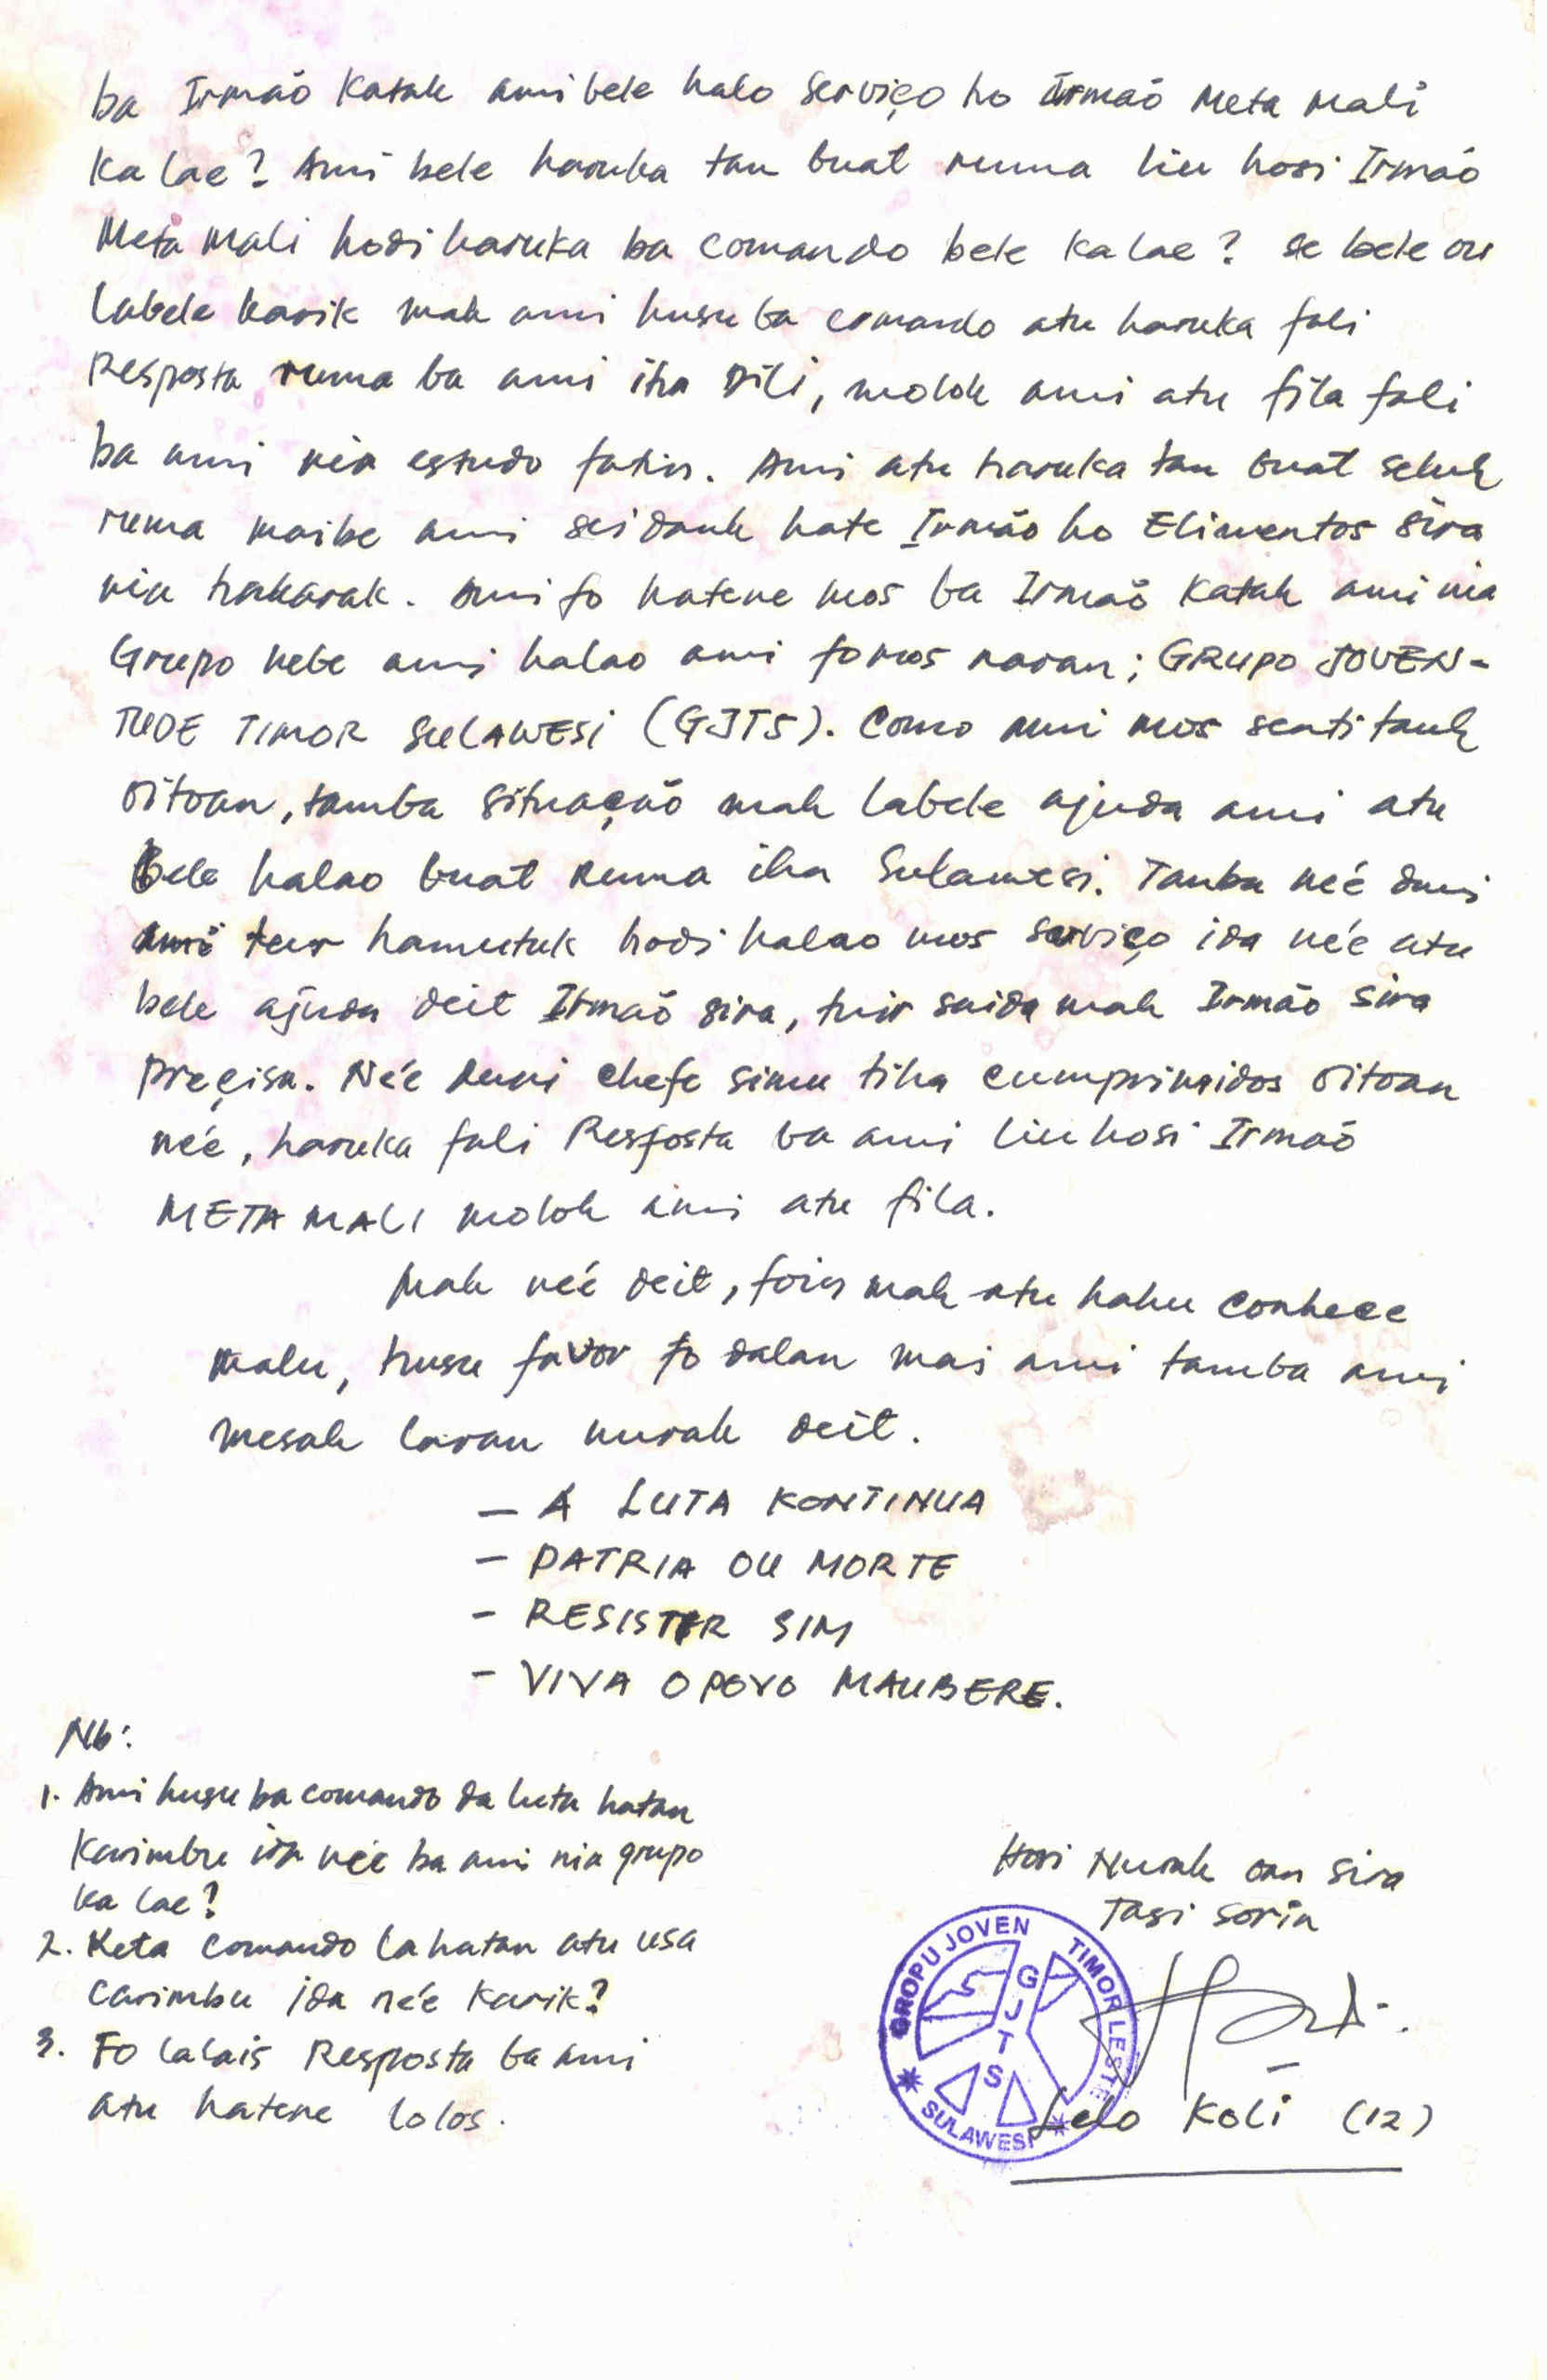 ba Irmaõ Katak ami bele halo serviço ho Irmaõ Meta Mali
Ka lae? Ami bele haruka tan buat ruma liu hosi Irmaõ
Meta Mali hodi haruka ba comando bele Ka lae? se bele ou
labele karik mak ami husu ba comando atu haruka fali
Resposta ruma ba ami iha Dili, molok ami atu fila fali
ba ami nia estudo fatin. Ami atu haruka tan buat seluk
ruma maibe ami seidauk hate Irmão ho Elimentos sira
nia hakarak. Ami fo hatene mos ba Irmaõ Katak ami nia
Grupo nebe ami halao ami fo mos naran; GRUPO JOVEN-
TUDE TIMOR SULAWESI (GJTS). Como ami mos senti tauk
oitoan, tamba situaçaõ mak labele ajuda ami atu
bele halao buat ruma iha Sulawesi. Tanba neé
ami tur hamutuk hodi halao mos serviço ida neé atu
bele ajuda deit Irmaõ sira, tuir saida mak Irmão sira
preçisa. Neé chefe simu tiha oitoan
neé, haruka fali Resposta ba ami liu hosi Irmaõ
META MALI molok ami atu fila.
Mak neé deit, foin mak atu hahu conhece
malu, husu favor fo dalan mai ami tamba ami
mesak laran nurak deit.
– A LUTA KONTINUA
– PATRIA OU MORTE
– RESISTIR SIM
– VIVA O POVO MAUBERE.
Nb:
1. Ami husu ba comando da luta hatan
Karimbu ida neé ba ami nia grupo
ka lae?
2. Keta comando la hatan atu usa
carimbu ida neé karik?
3. Fo lalais Resposta ba ami
atu hatene lolos.
Hosi Nurak oan sira
Tasi sorin
GROPU JOVEN TIMOR LESTE
G J T S
SULAWESI
Lelo Koli (12)